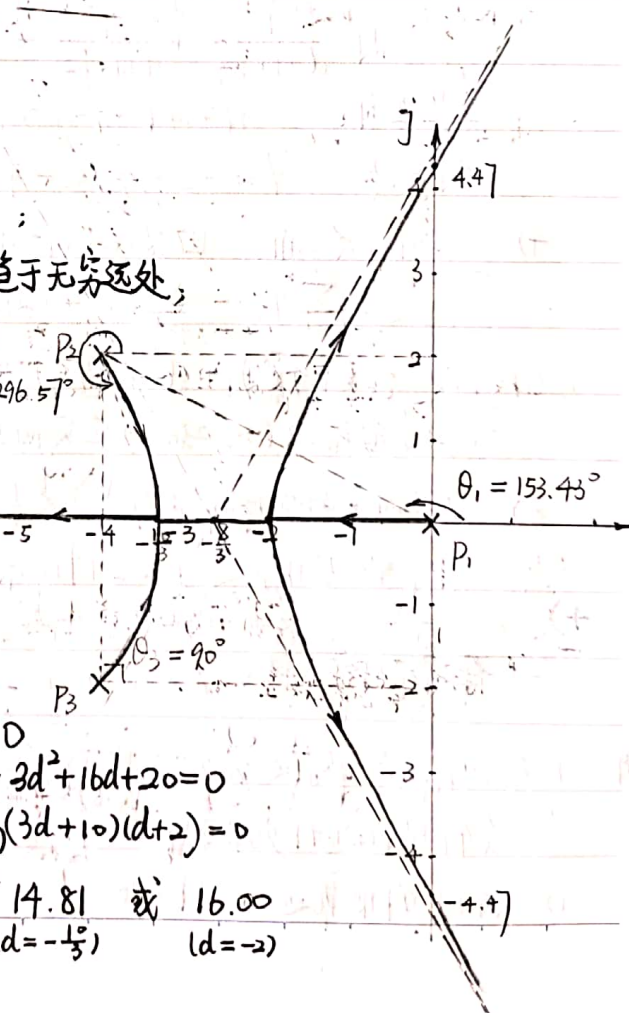 ;
趋于无穷远处;
j
4.47
4
3
P₂
2
296.57°
1
θ₁ = 153.43°
-5
-4
-10/3
-3
-8/3
-2
-1
P₁
-1
θ₃ = 90°
-2
P₃
0
3d²+16d+20=0
(3d+10)(d+2)=0
-3
-4
14.81 或 16.00
-4.47
d=-10/3)
(d=-2)